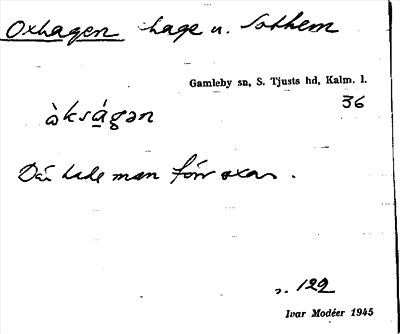 Oxhagen hage u. Sothem
Gamleby sn, S. Tjusts hd, Kalm. l.
36
àksá̱gən
Där hade man förr oxar.
s. 129
Ivar Modéer 1945